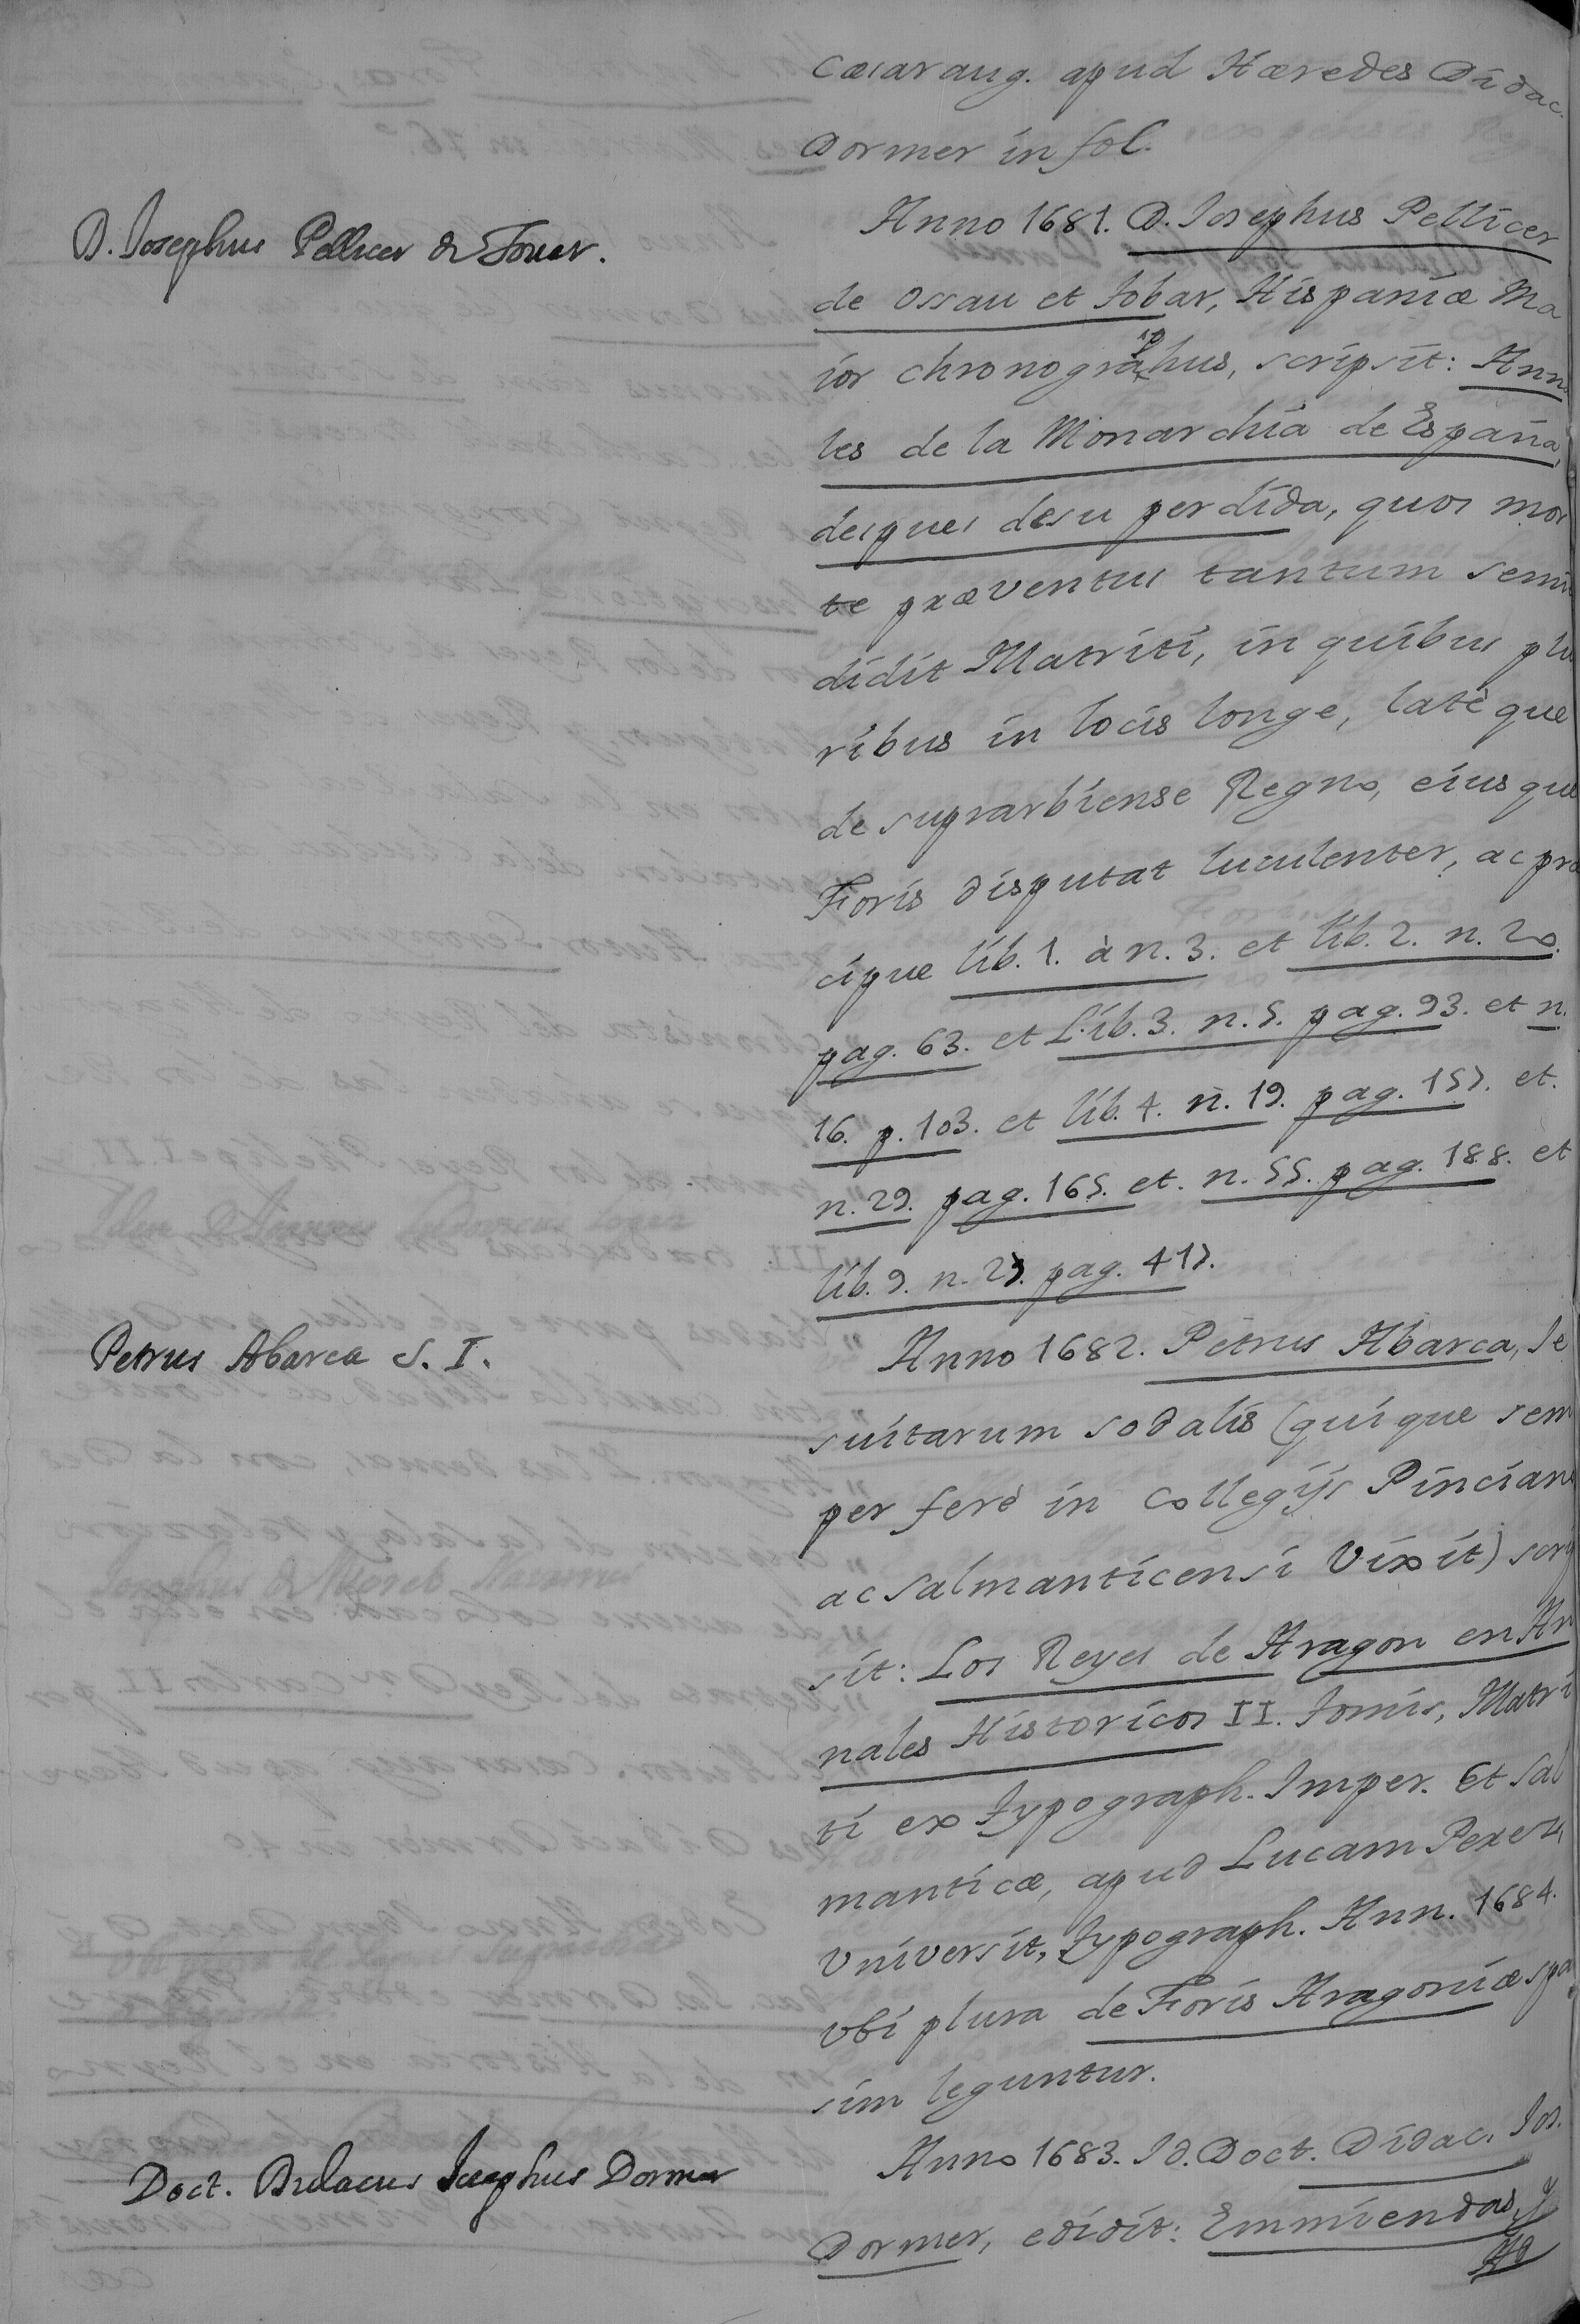 Cæsaraug. apud Hæredes Didac.
Dormer in fol.
D. Iosephus Pellicer de Touar.
Anno 1681. D. Iosephus Pellicer
de Ossau et Tobar, Hispaniæ Ma
ior chronographus, scripsit: Anna
les de la Monarchia de España,
despues de su perdida, quos mor
te præventus tantum semi
didit Matriti, in quibus plu
ribus in locis longe, latè que
de suprarbiense Regno, eiusque
Foris disputat luculenter, ac præ
cipue lib. 1. à n. 3. et lib. 2. n. 20.
pag. 63. et Lib. 3. n. 5. pag. 93. et n.
16. p. 103. et lib. 4. n. 19. pag. 157. et.
n. 29. pag. 165. et. n. 55. pag. 188. et
lib. 9. n. 27. pag. 417.
Petrus Abarca S. I.
Anno 1682. Petrus Abarca, Ie
suitarum sodalis (quique sem
per ferè in Collegijs Pinciano
ac Salmanticensi vixit) scrip
sit: Los Reyes de Aragon en An
nales Historicos II. Tomis, Matri
ti ex Typograph. Imper. Et Sal
manticæ, apud Lucam Perez,
Universit. Typograph. Ann. 1684.
vbi plura de Foris Aragoniæ spar
sim leguntur.
Doct. Didacus Iosephus Dormer
Anno 1683. Id. Doct. Didac. Ios.
Dormer, edidit: Emmiendas, y
Ad